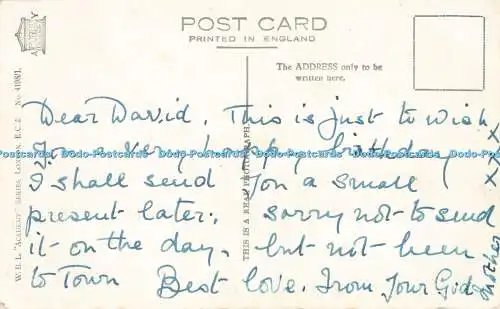 POST CARD
PRINTED IN ENGLAND
The ADDRESS only to be
written here.
ACADEMY
W.B.L. "ACADEMY" SERIES, LONDON, E.C.2
THIS IS A REAL PHOTOGRAPH
Dear David, This is just to wish
You a very happy birthday
I shall send You a small
present later, sorry not to send
it on the day, but not been
to Town Best love. From Your God-
mother
x x x
Dodo-Postcards Dodo-Postcards Dodo-Postcards Dodo-Postcards Dodo-Postcards Dodo-Postcards